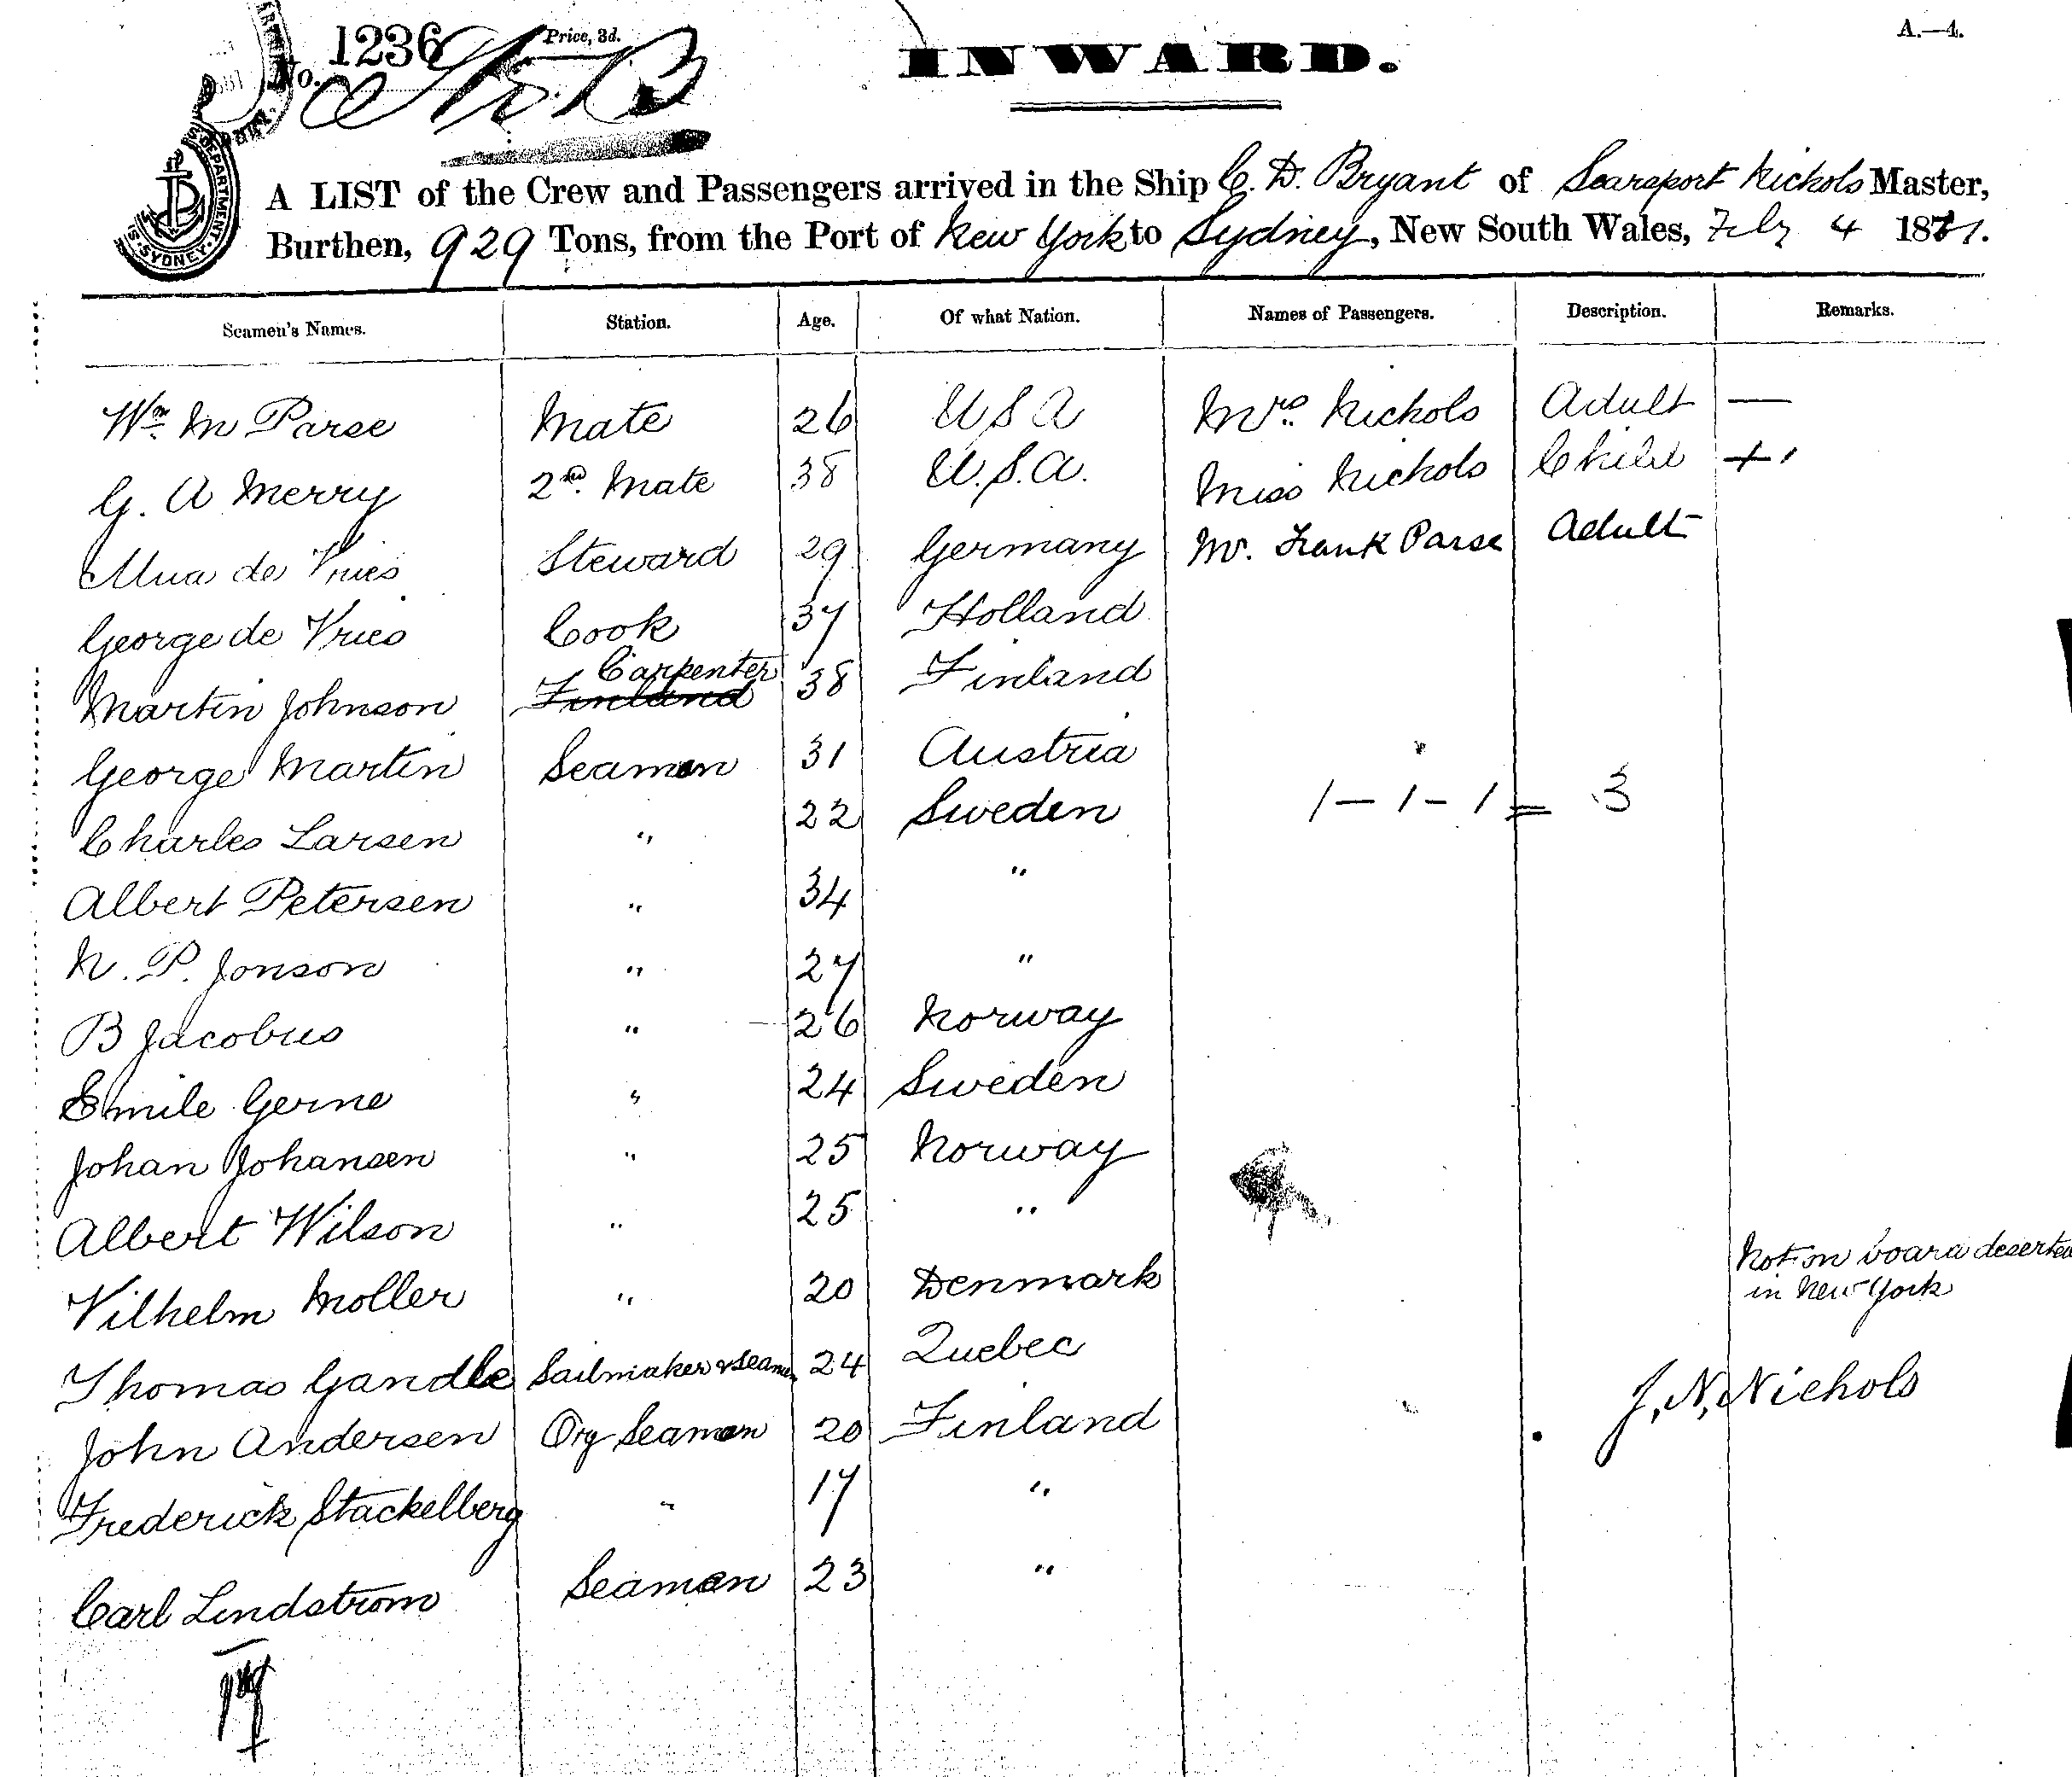 No. 1236 Price, 3d. A.—4.
INWARD.
A LIST of the Crew and Passengers arrived in the Ship C. D. Bryant of Searsport Nichols Master,
Burthen, 929 Tons, from the Port of New York to Sydney, New South Wales, July 4 1881.
DEPARTMENT SYDNEY
Seamen's Names. Station. Age. Of what Nation. Names of Passengers. Description. Remarks.
Wm. M Parse Mate 26 U S A Mrs. Nichols Adult —
G. A Merry 2nd Mate 38 U.S.A. Miss Nichols Child +
de Vries Steward 29 Germany Mr. Frank Parse Adult
George de Vries Cook 37 Holland
Martin Johnson Finland Carpenter 38 Finland
George Martin Seaman 31 Austria
Charles Larsen " 22 Sweden 1 – 1 – 1 = 3
Albert Petersen " 34 "
N. P. Jonson " 27 "
B Jacobus " 26 Norway
Emile Gerne " 24 Sweden
Johan Johansen " 25 Norway
Albert Wilson " 25 "
Vilhelm Moller " 20 Denmark Not on board deserted
in New York
Thomas Gandle Sailmaker & Seaman 24 Quebec
J. N. Nichols
John Andersen Ory Seaman 20 Finland
Frederick Stackelberg " 17 "
Carl Lindstrom Seaman 23 "